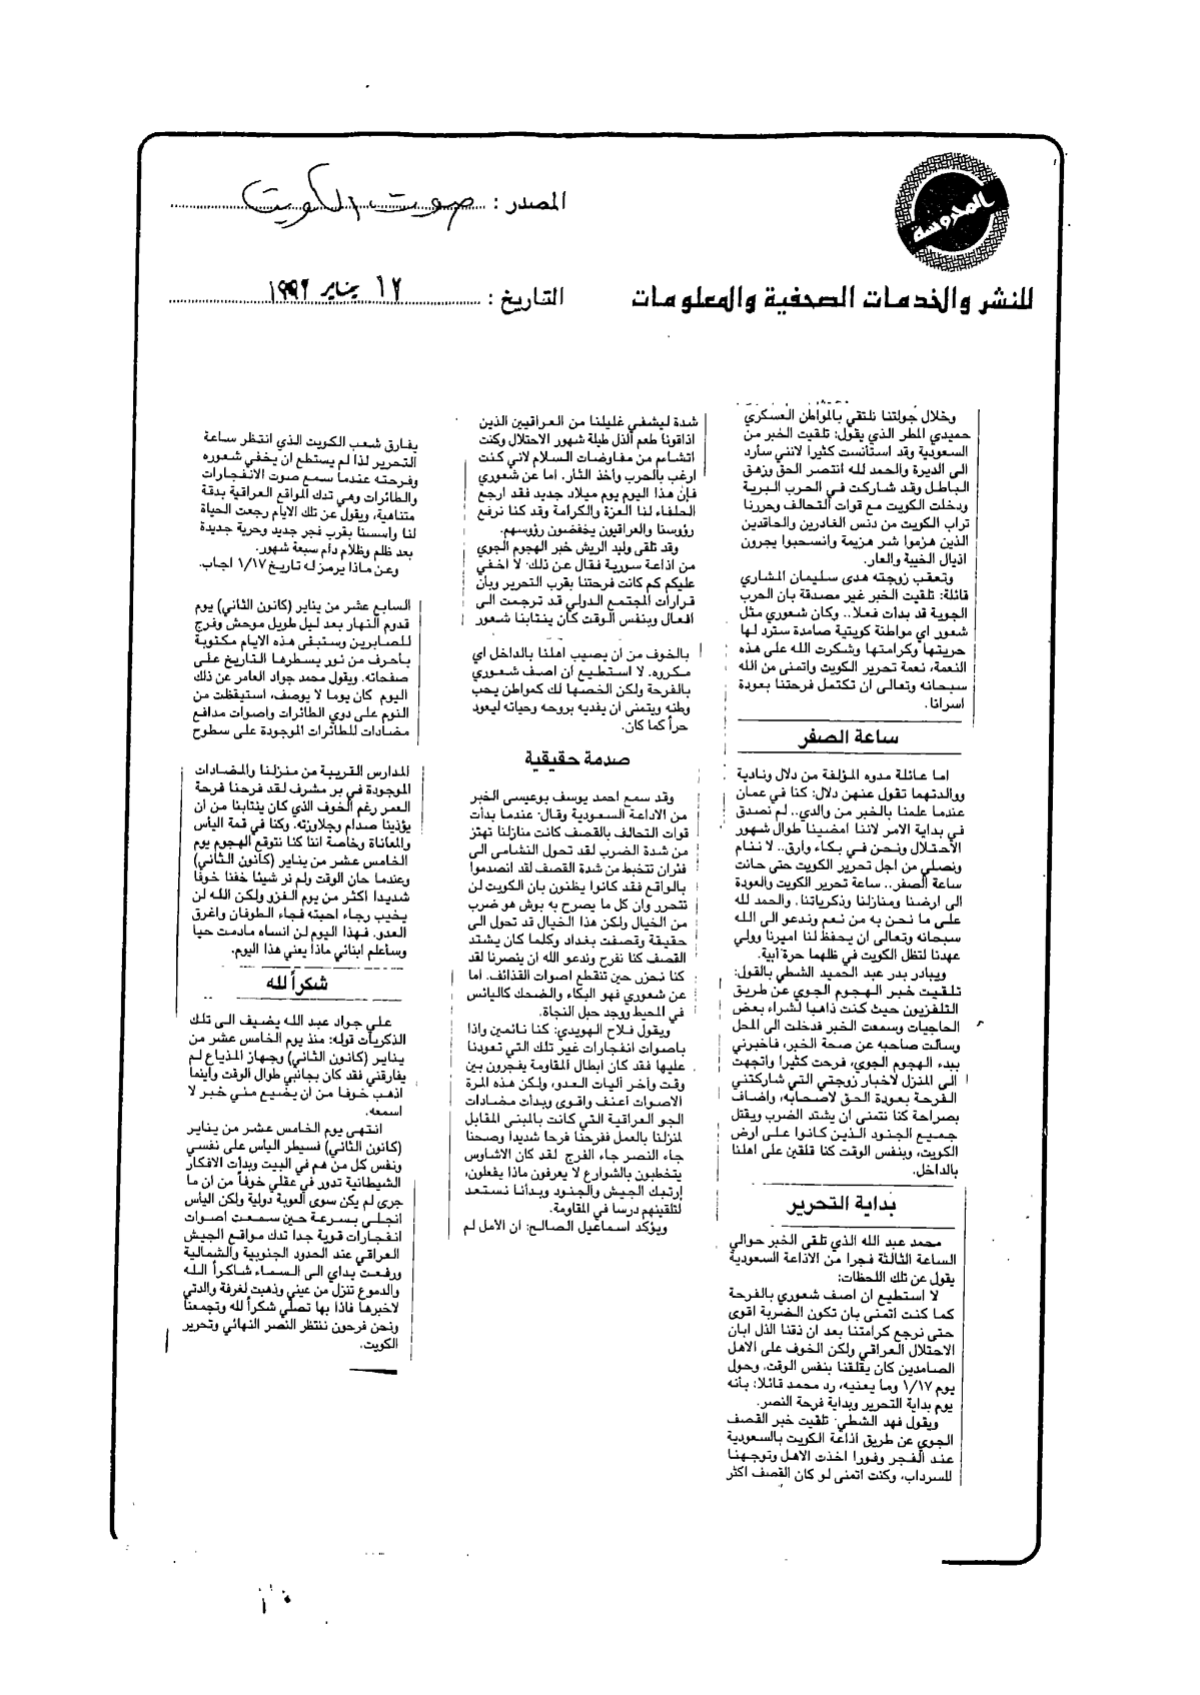 المحروسة
المصدر : صوت الكويت
للنشر والخدمات الصحفية والمعلومات
التاريخ : ١٧ يناير ١٩٩٢
وخلال جولتنا نلتقي بالمواطن العسكري
حميدي المطر الذي يقول: تلقيت الخبر من
السعودية وقد استانست كثيرا لانني سأرد
الى الديرة والحمد لله انتصر الحق وزهق
الباطل وقد شاركت في الحرب البرية
ودخلت الكويت مع قوات التحالف وحررنا
تراب الكويت من دنس الغادرين والحاقدين
الذين هزموا شر هزيمة وانسحبوا يجرون
اذيال الخيبة والعار.
وتعقب زوجته هدى سليمان المشاري
قائلة: تلقيت الخبر غير مصدقة بان الحرب
الجوية قد بدأت فعلا.. وكان شعوري مثل
شعور اي مواطنة كويتية صامدة سترد لها
حريتها وكرامتها وشكرت الله على هذه
النعمة، نعمة تحرير الكويت واتمنى من الله
سبحانه وتعالى ان تكتمل فرحتنا بعودة
اسرانا.
ساعة الصفر
اما عائلة مدوه المؤلفة من دلال ونادية
ووالدتهما تقول عنهن دلال: كنا في عمان
عندما علمنا بالخبر من والدي.. لم نصدق
في بداية الامر لاننا امضينا طوال شهور
الاحتلال ونحن في بكاء وارق.. لا ننام
ونصلي من اجل تحرير الكويت حتى حانت
ساعة الصفر.. ساعة تحرير الكويت والعودة
الى ارضنا ومنازلنا وذكرياتنا. والحمد لله
على ما نحن به من نعم وندعو الى الله
سبحانه وتعالى ان يحفظ لنا اميرنا وولي
عهدنا لتظل الكويت في ظلهما حرة أبية.
ويبادر بدر عبد الحميد الشطي بالقول:
تلقيت خبر الهجوم الجوي عن طريق
التلفزيون حيث كنت ذاهبا لشراء بعض
الحاجيات وسمعت الخبر فدخلت الى المحل
وسألت صاحبه عن صحة الخبر، فأخبرني
ببدء الهجوم الجوي، فرحت كثيرا واتجهت
الى المنزل لاخبار زوجتي التي شاركتني
الفرحة بعودة الحق لاصحابه، واضاف
بصراحة كنا نتمنى ان يشتد الضرب ويقتل
جميع الجنود الذين كانوا على ارض
الكويت، وبنفس الوقت كنا قلقين على اهلنا
بالداخل.
بداية التحرير
محمد عبد الله الذي تلقى الخبر حوالي
الساعة الثالثة فجرا من الاذاعة السعودية
يقول عن تلك اللحظات:
لا استطيع ان اصف شعوري بالفرحة
كما كنت اتمنى بان تكون الضربة اقوى
حتى نرجع كرامتنا بعد ان ذقنا الذل ابان
الاحتلال العراقي ولكن الخوف على الاهل
الصامدين كان يقلقنا بنفس الوقت. وحول
يوم ١/١٧ وما يعنيه، رد محمد قائلا: بأنه
يوم بداية التحرير وبداية فرحة النصر.
ويقول فهد الشطي: تلقيت خبر القصف
الجوي عن طريق اذاعة الكويت بالسعودية
عند الفجر وفورا اخذت الاهل وتوجهنا
للسرداب، وكنت اتمنى لو كان القصف اكثر
شدة ليشفي غليلنا من العراقيين الذين
اذاقونا طعم الذل طيلة شهور الاحتلال وكنت
اتشاءم من مفاوضات السلام لاني كنت
ارغب بالحرب واخذ الثأر. اما عن شعوري
فإن هذا اليوم يوم ميلاد جديد فقد ارجع
الحلفاء لنا العزة والكرامة وقد كنا نرفع
رؤوسنا والعراقيون يخفضون رؤوسهم.
وقد تلقى وليد الريش خبر الهجوم الجوي
من اذاعة سورية فقال عن ذلك: لا اخفي
عليكم كم كانت فرحتنا بقرب التحرير وبأن
قرارات المجتمع الدولي قد ترجمت الى
افعال وبنفس الوقت كان ينتابنا شعور
بالخوف من أن يصيب اهلنا بالداخل اي
مكروه. لا استطيع ان اصف شعوري
بالفرحة ولكن الخصها لك كمواطن يحب
وطنه ويتمنى ان يفديه بروحه وحياته ليعود
حراً كما كان.
صدمة حقيقية
وقد سمع احمد يوسف بوعيسى الخبر
من الاذاعة السعودية وقال: عندما بدأت
قوات التحالف بالقصف كانت منازلنا تهتز
من شدة الضرب لقد تحول النشامى الى
فئران تتخبط من شدة القصف لقد انصدموا
بالواقع فقد كانوا يظنون بان الكويت لن
تتحرر وان كل ما يصرح به بوش هو ضرب
من الخيال ولكن هذا الخيال قد تحول الى
حقيقة وقصفت بغداد وكلما كان يشتد
القصف كنا نفرح وندعو الله ان ينصرنا لقد
كنا نحزن حين تنقطع اصوات القذائف. اما
عن شعوري فهو البكاء والضحك كاليائس
في المحيط ووجد حبل النجاة.
ويقول فلاح الهويدي: كنا نائمين واذا
باصوات انفجارات غير تلك التي تعودنا
عليها فقد كان ابطال المقاومة يفجرون بين
وقت وآخر آليات العدو، ولكن هذه المرة
الاصوات اعنف واقوى وبدأت مضادات
الجو العراقية التي كانت بالمبنى المقابل
لمنزلنا بالعمل ففرحنا فرحا شديدا وصحنا
جاء النصر جاء الفرج لقد كان الاشاوس
يتخبطون بالشوارع لا يعرفون ماذا يفعلون،
إرتبك الجيش والجنود وبدأنا نستعد
لتلقينهم درسا في المقاومة.
ويؤكد اسماعيل الصالح: ان الامل لم
يفارق شعب الكويت الذي انتظر ساعة
التحرير لذا لم يستطع ان يخفي شعوره
وفرحته عندما سمع صوت الانفجارات
والطائرات وهي تدك المواقع العراقية بدقة
متناهية، ويقول عن تلك الايام رجعت الحياة
لنا واسسنا بقرب فجر جديد وحرية جديدة
بعد ظلم وظلام دام سبعة شهور.
وعن ماذا يرمز له تاريخ ١/١٧ اجاب.
السابع عشر من يناير (كانون الثاني) يوم
قدوم النهار بعد ليل طويل موحش وفرج
للصابرين وستبقى هذه الايام مكتوبة
بأحرف من نور يسطرها التاريخ على
صفحاته. ويقول محمد جواد العامر عن ذلك
اليوم كان يوما لا يوصف، استيقظت من
النوم على دوي الطائرات واصوات مدافع
مضادات للطائرات الموجودة على سطوح
المدارس القريبة من منزلنا والمضادات
الموجودة في بر مشرف لقد فرحنا فرحة
العمر رغم الخوف الذي كان ينتابنا من ان
يؤذينا صدام وجلاوزته. وكنا في قمة اليأس
والمعاناة وخاصة اننا كنا نتوقع الهجوم يوم
الخامس عشر من يناير (كانون الثاني)
وعندما حان الوقت ولم نر شيئا خفنا خوفا
شديدا اكثر من يوم الغزو ولكن الله لن
يخيب رجاء احبته فجاء الطوفان واغرق
العدو. فهذا اليوم لن انساه مادمت حيا
وسأعلم ابنائي ماذا يعني هذا اليوم.
شكراً لله
علي جواد عبد الله يضيف الى تلك
الذكريات قوله: منذ يوم الخامس عشر من
يناير (كانون الثاني) وجهاز المذياع لم
يفارقني فقد كان بجانبي طوال الوقت وأينما
اذهب خوفا من ان يضيع مني خبر لا
اسمعه.
انتهى يوم الخامس عشر من يناير
(كانون الثاني) فسيطر اليأس على نفسي
ونفس كل من هم في البيت وبدأت الافكار
الشيطانية تدور في عقلي خوفاً من ان ما
جرى لم يكن سوى العوبة دولية ولكن اليأس
انجلى بسرعة حين سمعت اصوات
انفجارات قوية جدا تدك مواقع الجيش
العراقي عند الحدود الجنوبية والشمالية
ورفعت يداي الى السماء شاكراً الله
والدموع تنزل من عيني وذهبت لغرفة والدتي
لاخبرها فاذا بها تصلي شكراً لله وتجمعنا
ونحن فرحون ننتظر النصر النهائي وتحرير
الكويت.